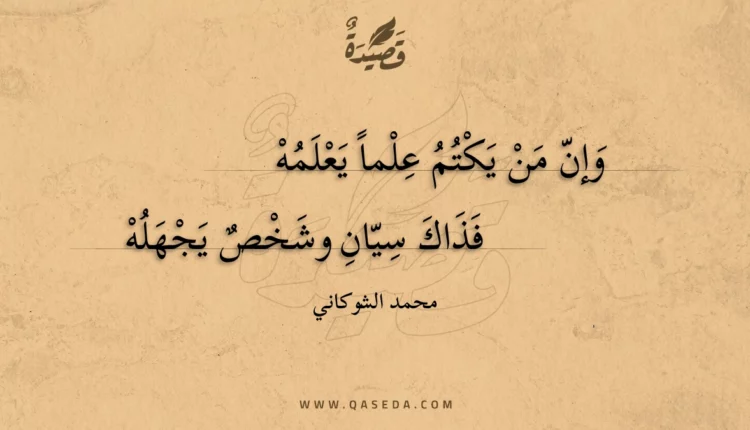 قَصِيْدَةٌ
وَإنّ مَنْ يَكْتُمُ عِلْماً يَعْلَمُهْ
فَذَاكَ سِيّانِ وشَخْصٌ يَجْهَلُهْ
محمد الشوكاني
WWW.QASEDA.COM